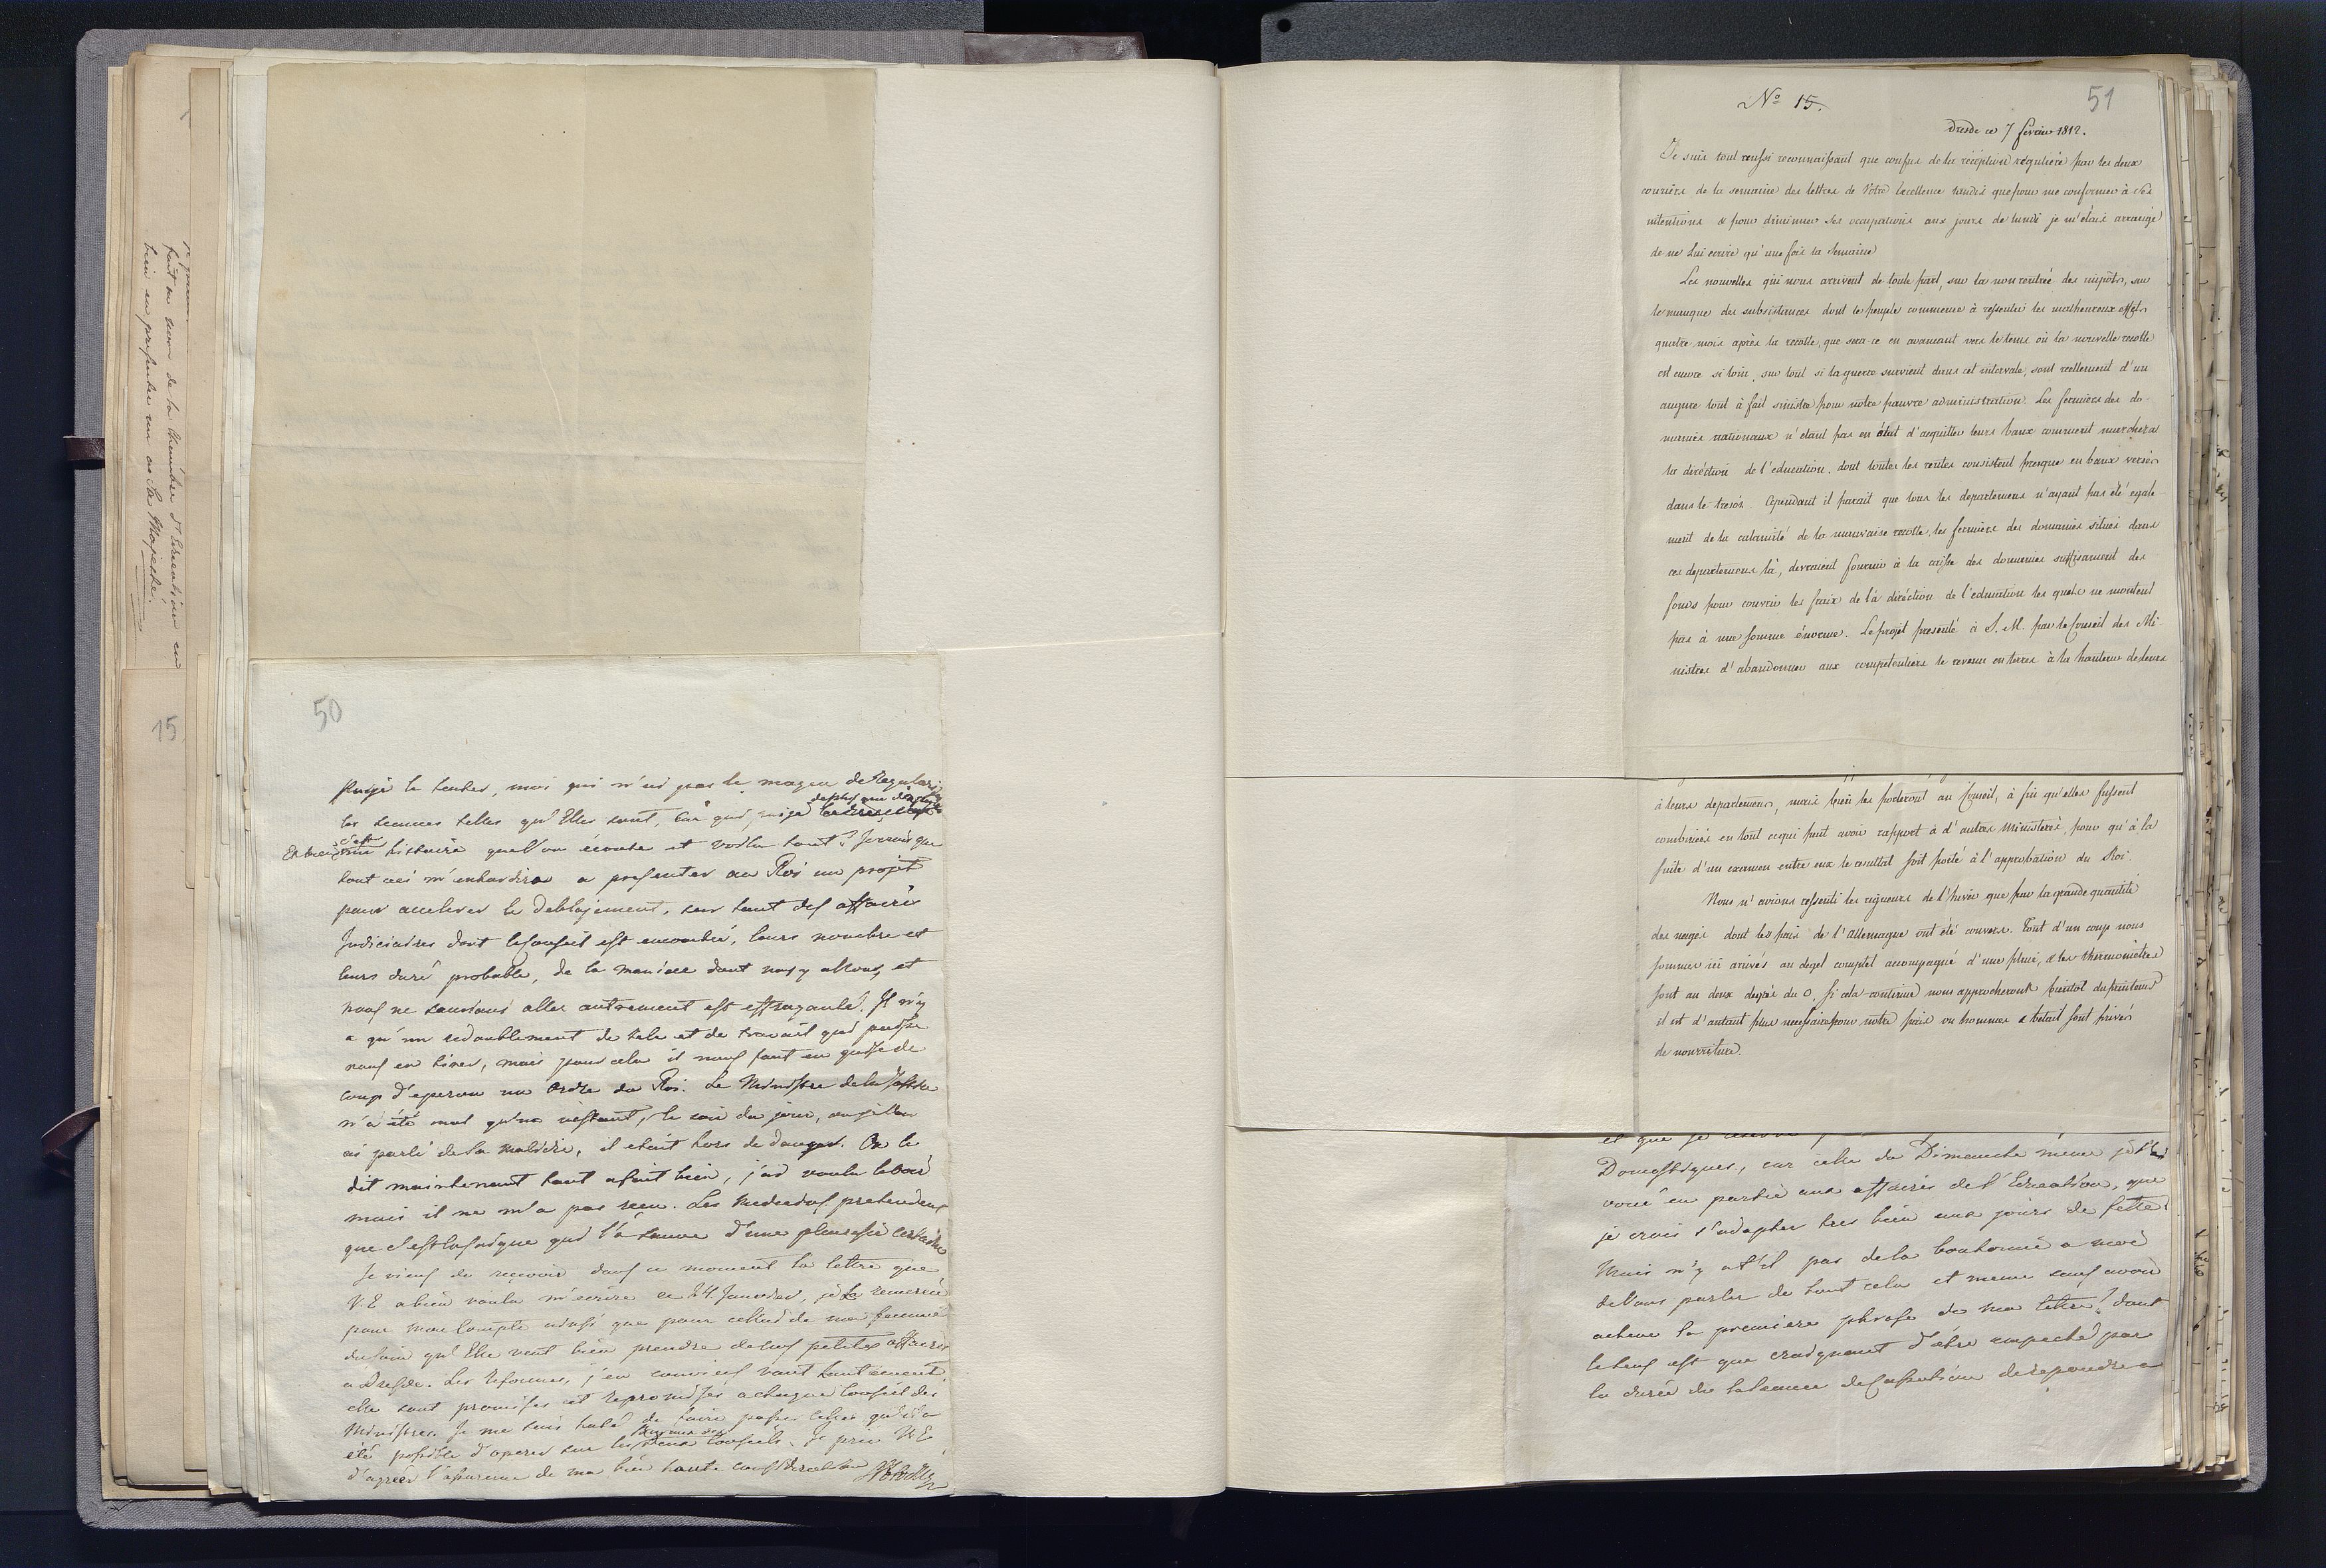 fait au nom de la Chambre d'Education en
bien en presenter un au Sa Majesté.
15
50
puisje le tenter, moi qui n'ai pas le moyen de Regulari
les seances telles qu'Elles sont, car qui
Eh bien c'est une histoire que l'on écoute et voila tout? Je crois que
tout ceci m'enhardira a presenter au Roi un projet
pour accelerer le deblajement, sur tout des affaires
Judiciaires dont le Conseil est encombré, leurs nombre et
leurs duré probable, de la maniere dont nous y allons, et
nous ne saurions aller autrement est effrayante. Il n'y
a qu'un redoublement de zele et de travail qui puisse
nous en tirer, mais pour cela il nous faut en guise de
coup d'eperon un Ordre du Roi. Le Ministre de la Justice
n'a été mal qu'un instant, le soir du jour, ou je Vous
ai parlé de la maladie, il etait hors de danger. On le
dit maintenant tout a fait bien, j'ai voulu le voir
mais il ne m'a pas reçu. Les Medecins pretendent
que c'est la saignée qui l'a sauvé d'une pleuresie certaine
Je viens de reçevoir dans ce moment la lettre que
V.E a bien voulu m'ecrire ce 24. Janvier, je La remercie
pour mon Compte ainsi que pour celui de ma femme
du soin qu'Elle veut bien prendre de nos petites affaires
a Dresde. Les Reformes, j'en conviens vont lentement,
elle sont promises et repromises a chaque Conseil des
Ministres. Je me suis haté de faire passer celles qu'il a
été possible d'operer sur les deux Conseils. Je prie V.E
d'agréer l'assurance de ma bien haute consideration
No 15.
51
Dresde ce 7 fevrier 1812.
Je suis tout aussi reconnaissant que confus de la réception régulière par les deux
couriers de la semaine des lettres de Votre Excellence tandis que pour me conformer à Ses
intentions & pour diminuer Ses occupations aux jours de lundi je m'étais arrangé
de ne Lui ecrire qu'une fois la semaine
Les nouvelles qui nous arrivent de toute part, sur la non rentrée des impôts, sur
le manque des subsistances dont le peuple commence à ressentir les malheureux effets
quatre mois après la recolte, que sera-ce en avançant vers le tems où la nouvelle recolte
est encore si loin, sur tout si la guerre survient dans cet intervale, sont reellement d'un
augure tout à fait sinistre pour notre pauvre administration. Les fermiers des do-
maines nationaux n'etant pas en état d'acquitter leurs baux comment marchera
la diréction de l'education, dont toutes les rentes consistent presque en baux versés
dans le tresor. Cependant il parait que tous les departemens n'ayant pas été egale-
ment de la calamité de la mauvaise recolte, les fermiers des domaines situés dans
ces departemens là, devraient fournir à la caisse des domaines suffisament des
fonds pour couvrir les fraix de la diréction de l'education les quels ne montent
pas à une somme énorme. Le projet presenté à S. M. par le Conseil des Mi-
nistres d'abandonner aux competentiers le revenu en terres à la hauteur de leurs
à leurs departemens, mais bien les porteront au Conseil, à fin qu'elles fussent
combinées en tout ce qui peut avoir rapport à d'autres Ministères, pour qu'à la
suite d'un examen entre eux le resultat soit porté à l'approbation du Roi.
Nous n'avions ressenti les rigueurs de l'hiver que par la grande quantité
des neiges dont les pais de l'allemagne ont été couvers. Tout d'un coup nous
sommes ici arrivés au degel complet accompagné d'une pluie, & les thermomètres
sont au deux degrés du 0. Si cela continue nous approcherons bientot du printems
il est d'autant plus necessaire pour notre pais ou hommes & betail sont privés
de nourriture.
et que je reserve
Domestiques, car celle du Dimanche meme je l'ai
voué en partie aux affaires de l'Education, que
je crois s'adapter tres bien aux jours de fette.
Mais n'y at'il pas de la bonhomie a moi
de Vous parler de tout cela et meme sans avoir
achevé la premiere phrase de ma lettre? dont
le sens est que craignant d'être empeché par
la durée de la seance de Cassation de repondre a